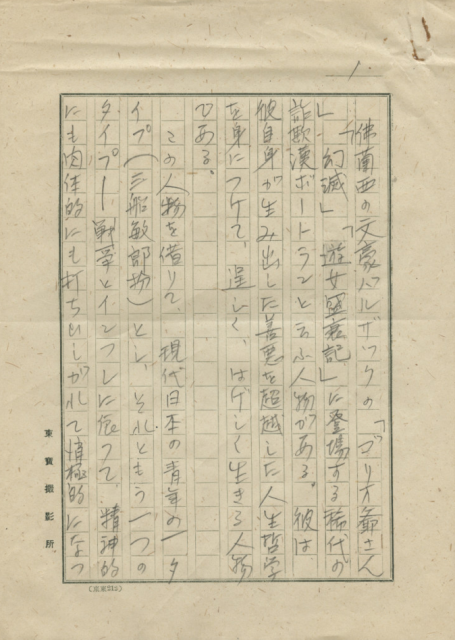 1.
佛蘭西の文豪バルザックの「ゴリオ爺さん
」「幻滅」「遊女盛衰記」に登場する稀代の
詐欺漢ボートランと云ふ人物がある。彼は
彼自身が生み出した善悪を超越した人生哲学
を身につけて、逞しく、はげしく生きる人物
である。
この人物を借りて、現代日本の青年の一タ
イプ(三船敏郎物)とし、それともう一つの
タイプー、戦争とインフレに食って、精神的
にも肉体的にも打ちひしがれて消極的になっ
東寶撮影所